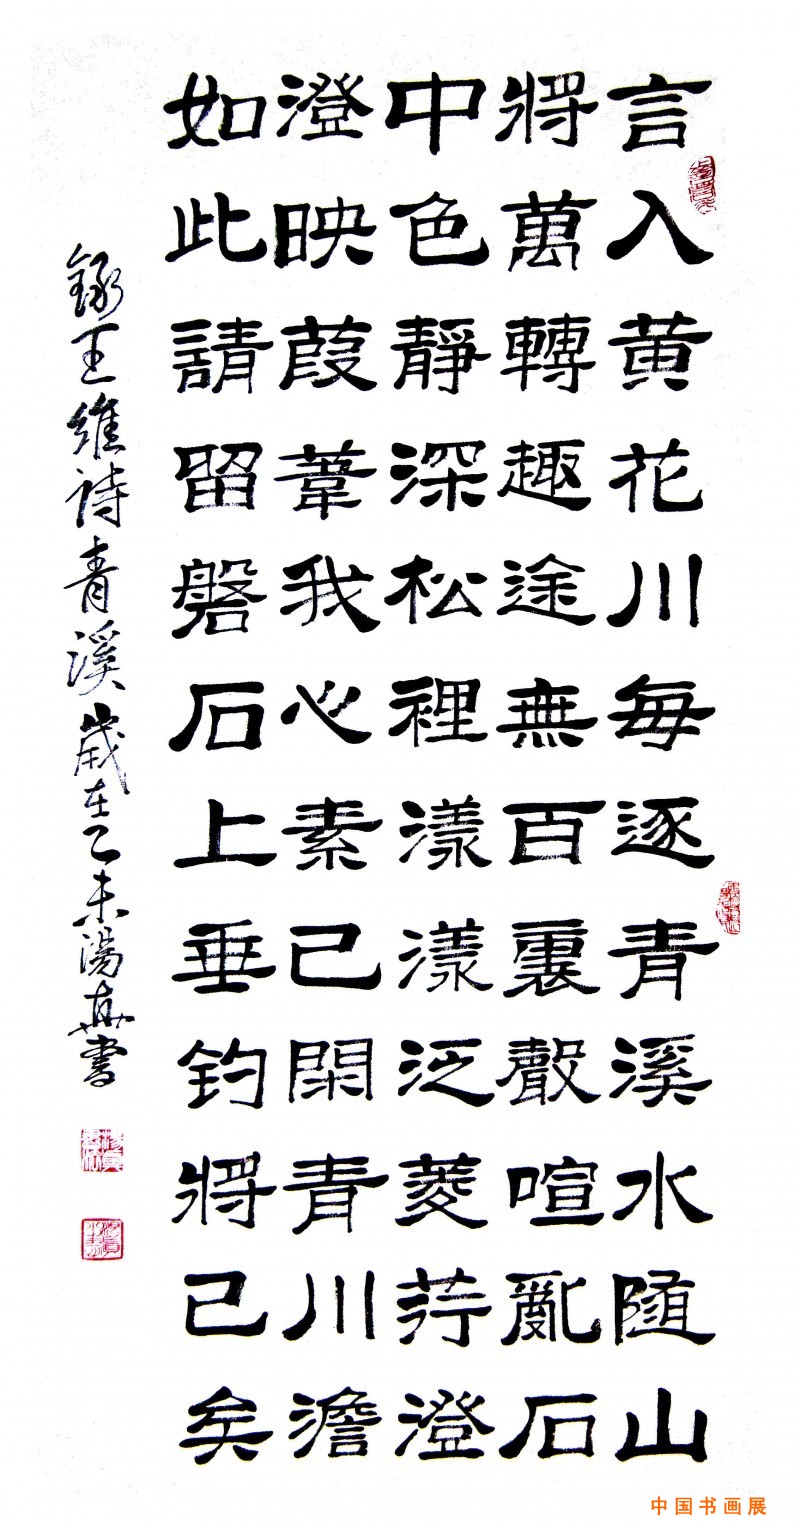 言入黄花川每逐青溪水隨山
將萬轉趣途無百裏聲喧亂石
中色靜深松裡漾漾泛菱荇澄
澄映葭葦我心素已閑青川澹
如此請留磐石上垂釣將已矣
錄王維詩青溪歲在乙未湯真書
中国书画展